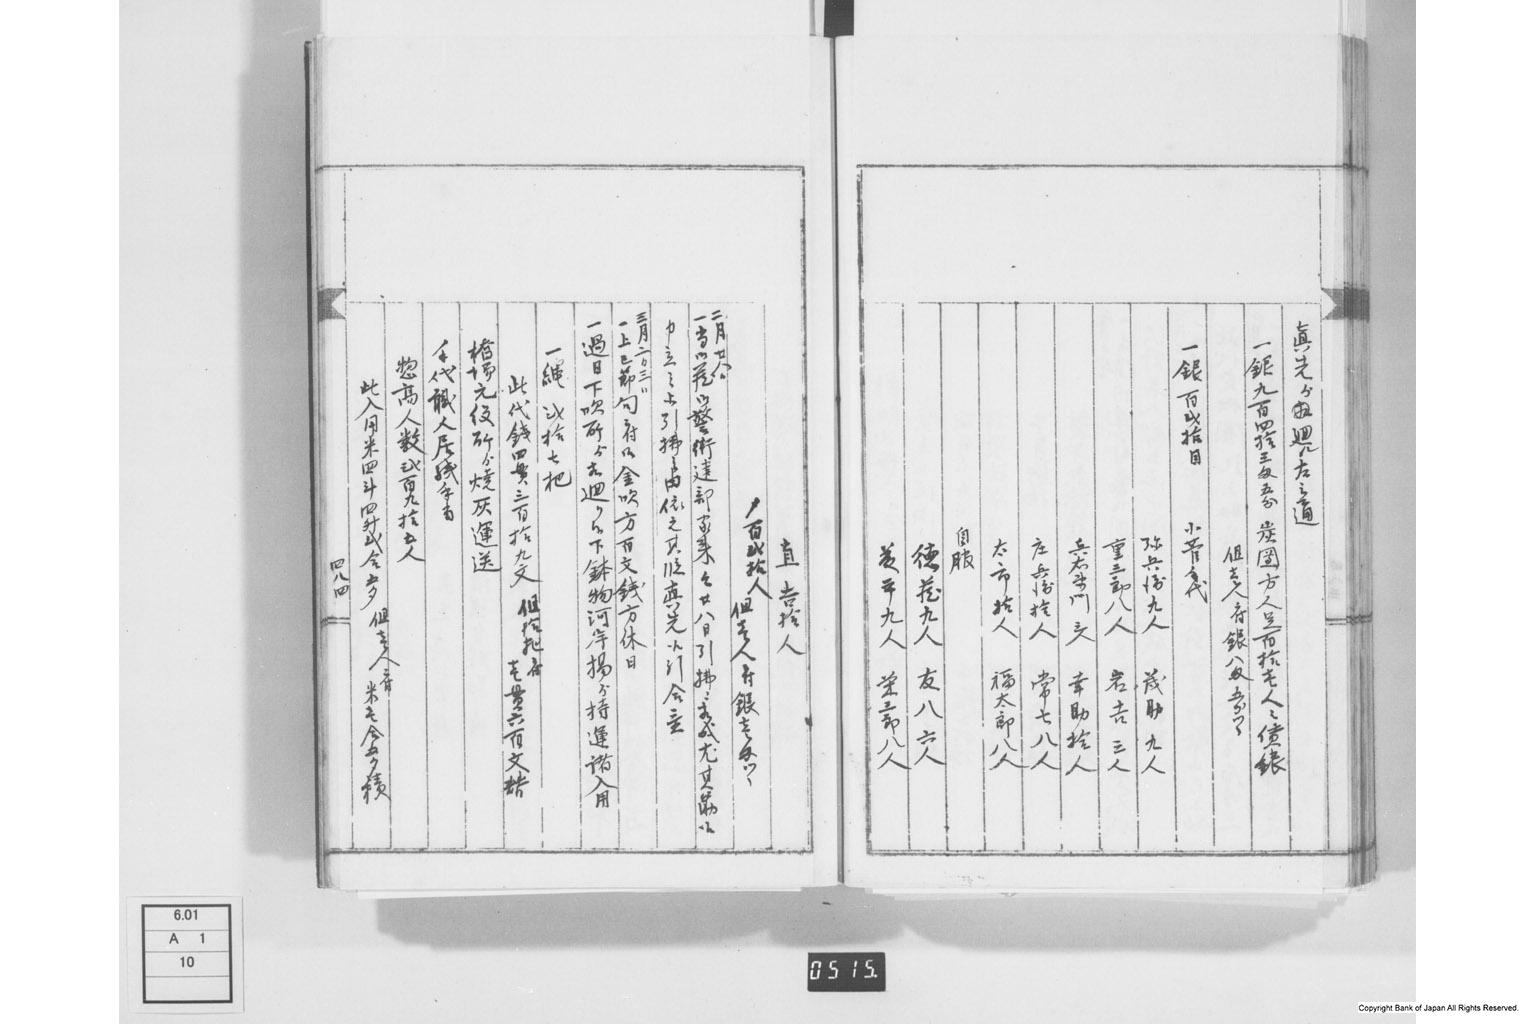 真先分相廻ル左之通
一銀九百四拾三匁五分 炭團方人足百拾壱人之債銀
但壱人ニ付銀八匁五分ツヽ
一銀百弐拾目 小菅手代
弥兵衛九人 茂助 九人
重三郎八人 岩吉 三人
兵右衛門三人 幸助拾人
庄兵衛拾人 常七八人
太市拾人 福太郎八人
自服
徳蔵九人 友八六人
平九人 栄三郎八人
直吉拾人
〆百弐拾人 但壱人ニ付銀壱匁ツヽ
二月廿八日
一当御蔵御警衛建部家来今廿八日引拂之尤其筋
中立之上引拂
三月二日三日
一上巳節句ニ付金吹方百文銭方休日
一過日下吹所分相廻り候下鉢物河岸揚分持運諸入用
一縄 弐拾七把
此代銭四貫三百拾九文 但拾把ニ付壱貫六百文替
橋場元役所分焼灰運送
手代職人居残手当
惣高人数弐百九拾五人
此入用米四斗四升弐合五夕 但壱人ニ付米壱合五夕積
四八四
6.01
A 1
10
0515.
Copyright Bank of Japan All Rights Reserved.